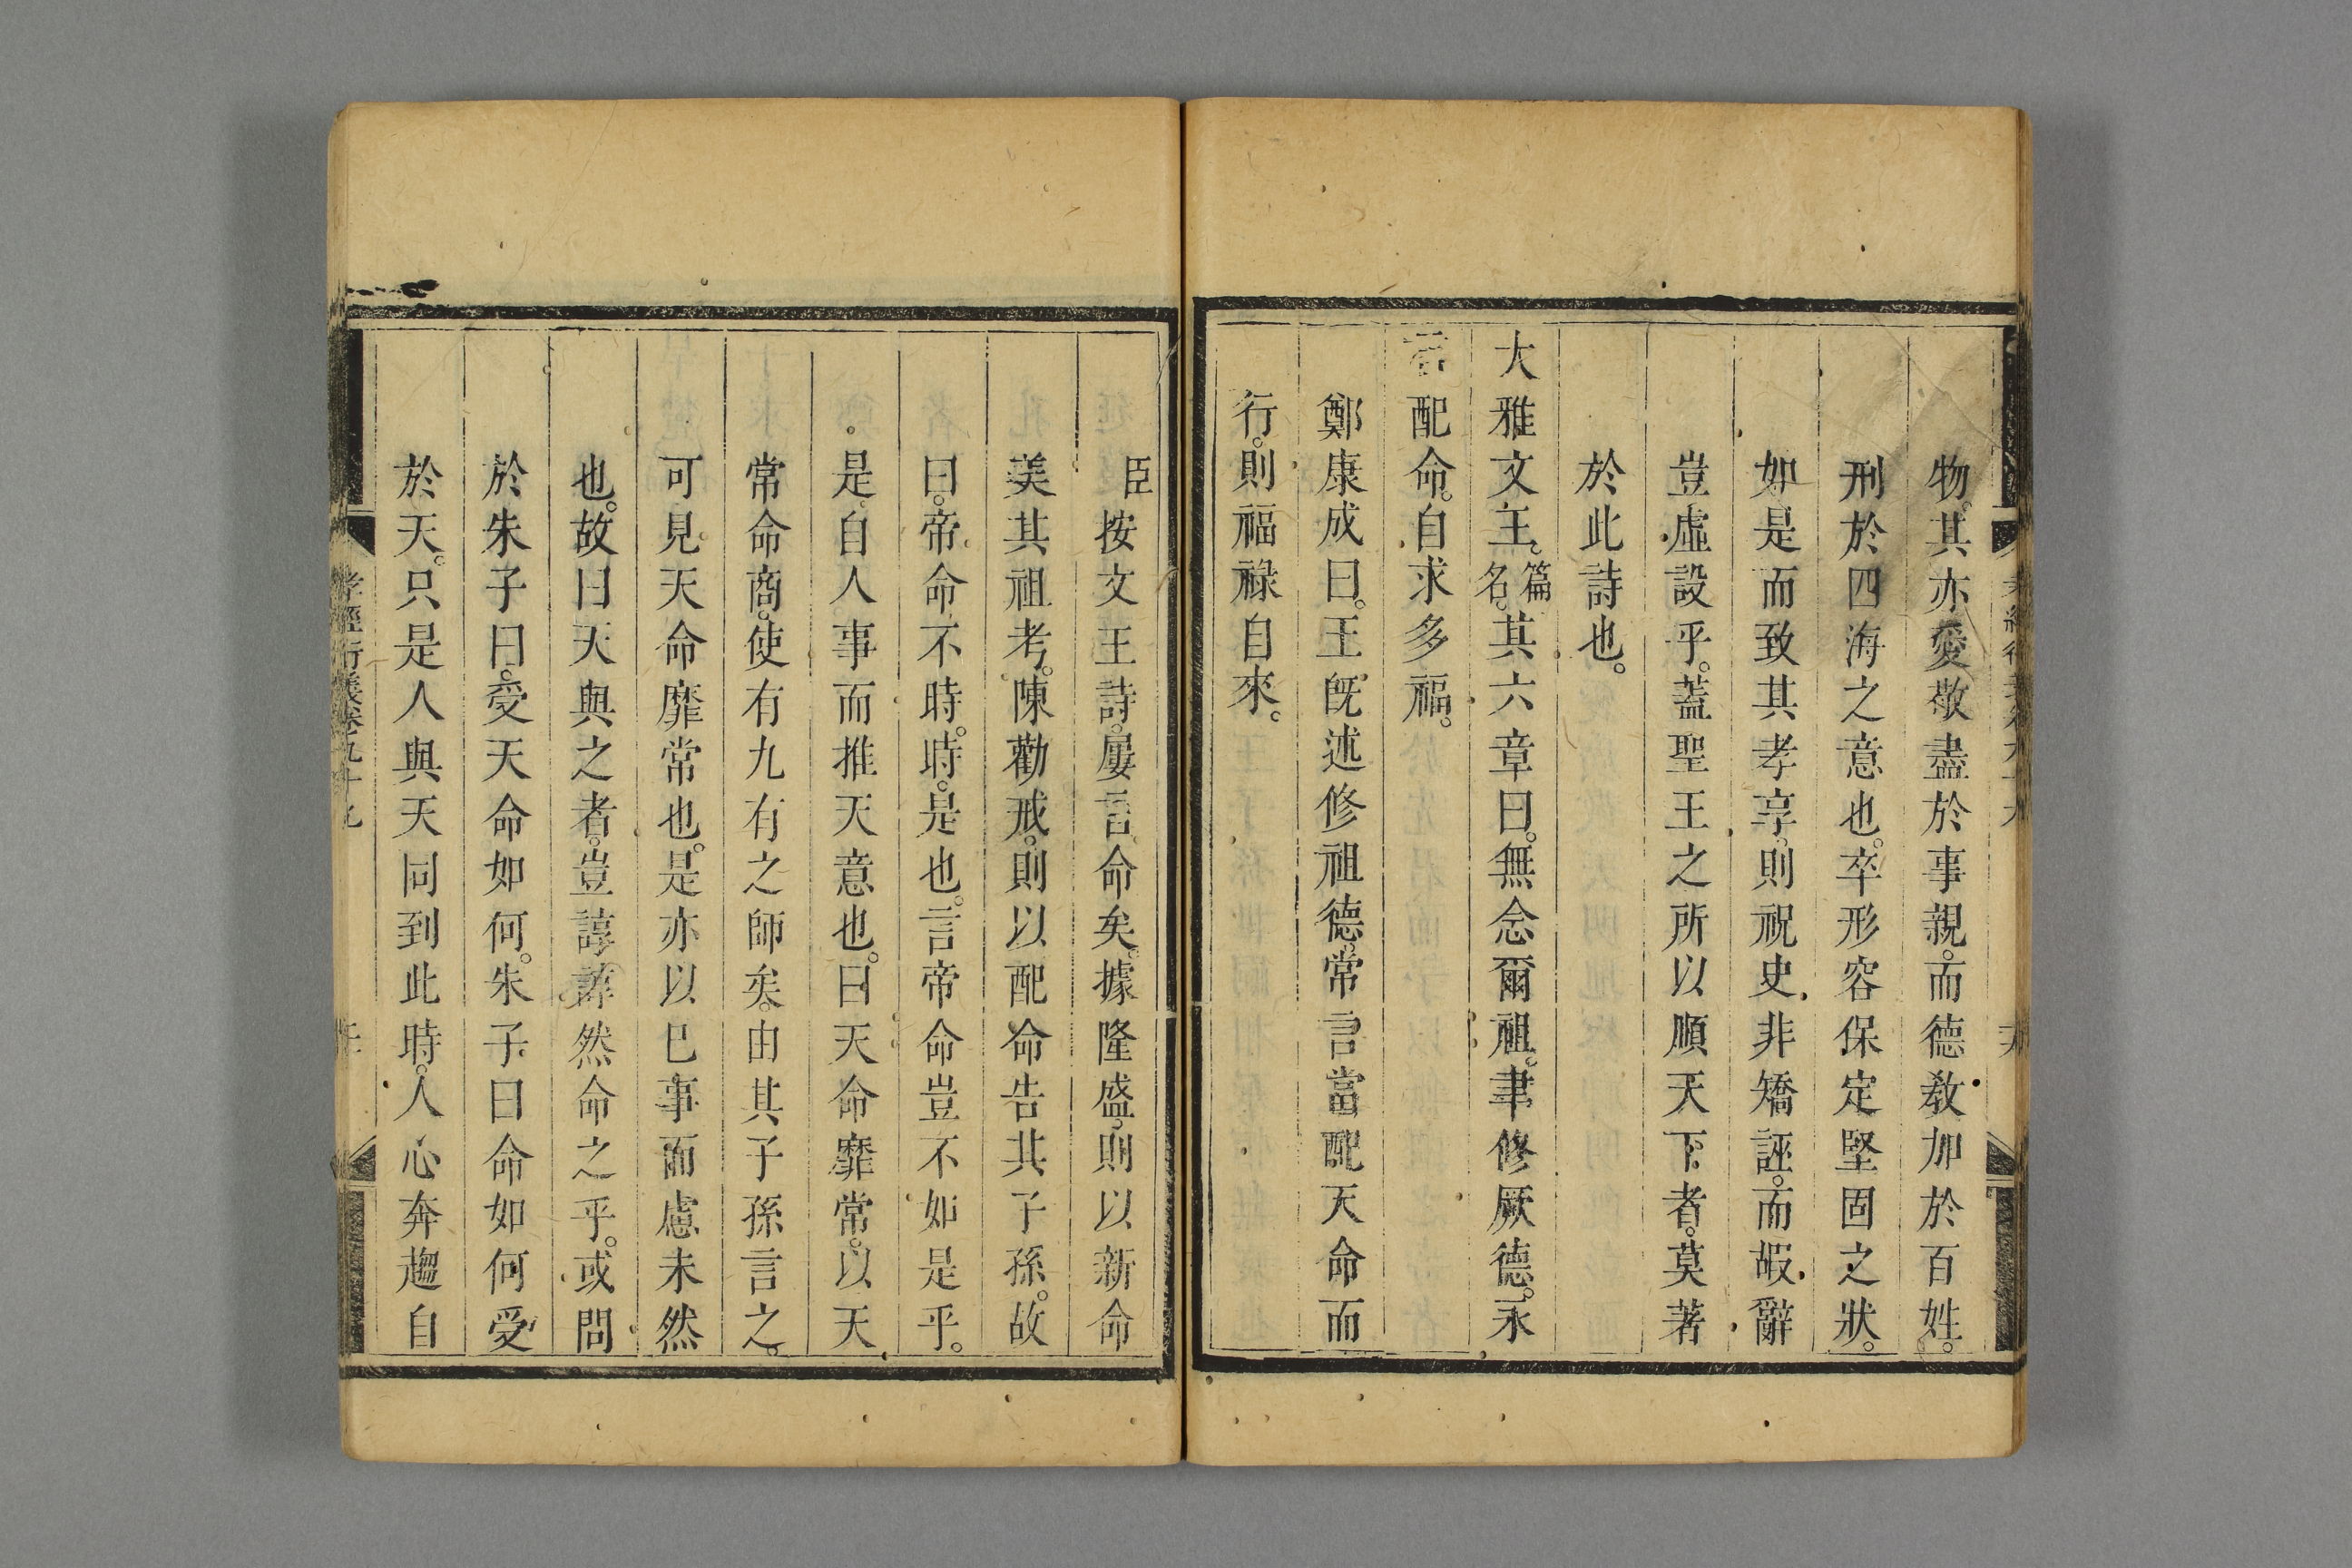 物。其亦愛敬盡於事親。而德教加於百姓。
刑於四海之意也。卒形容保定堅固之狀。
如是而致其孝享。則祝史非矯誣。而嘏辭
豈虛設乎。蓋聖王之所以順天下者。莫著
於此詩也。
大雅文王。篇名。其六章曰。無念爾祖。聿修厥德。永
言配命。自求多福。
鄭康成曰。王既述修祖德。常言當配天命而
行。則福祿自來。
臣按文王詩。屢言命矣。據隆盛。則以新命
美其祖考。陳勸戒。則以配命告其子孫。故
曰。帝命不時。時。是也。言帝命豈不如是乎。
是自人事而推天意也。曰天命靡常。以天
常命商。使有九有之師矣。由其子孫言之。
可見天命靡常也。是亦以巳事而慮未然
也。故曰天與之者。豈諄諄然命之乎。或問
於朱子曰。受天命如何。朱子曰命如何受
於天。只是人與天同到此時。人心奔趨自
孝經衍義卷九十九